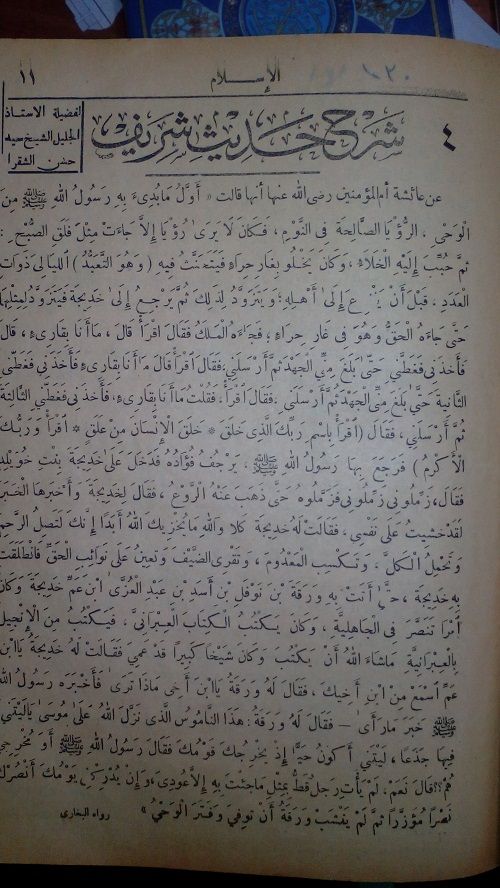 ١١
الإسلام
١٢٠
٤
شرح حديث شريف
لفضيلة الاستاذ
الجليل الشيخ سيد
حسن الشقرا
عن عائشة أم المؤمنين رضى الله عنها أنها قالت « أَوَّلُ مَابُدِىءَ بِهِ رَسُولُ اللهِ ﷺ مِنَ
الْوَحْىِ، الرُّؤْيَا الصَّالِحَةُ فِى النَّوْمِ، فَكَانَ لَا يَرَى رُؤْيَا إِلاَّ جَاءَتْ مِثْلَ فَلَقِ الصُّبْحِ:
ثمَّ حُبِّبَ إِلَيْهِ الْخَلَاءُ، وَكَانَ يَخْلُو بِغَارِ حِرَاءٍ فَيَتَحَنَّثُ فِيهِ ( وَهُوَ التَّعَبُّدُ ) اَللَّيَالِىَ ذَوَاتِ
الْعَدَدِ، قَبْلَ أَنْ يَنْزِعَ إِلَى أَهْلِهِ؛ وَيَتَزَوَّدُ لِذَلِكَ ثُمَّ يَرْجِعُ إِلَى خَدِيجَةَ فَيَتَزَوَّدُ لِمِثْلِهَا
حَتَّى جَاءَهُ الْحَقُّ وَهُوَ فى غَارِ حِرَاءٍ؛ فَجَاءَهُ الْمَلَكُ فَقَالَ اقْرَأْ قَالَ، مَاأَنَا بِقَارِىءٍ، قَالَ
فَأَخَذَنِى فَغَطَّنِى حَتَّى بَلَغَ مِنِّى الْجَهْدَ ثُمَّ أَرْسَلَنِى؛ فَقَالَ اقْرَأْ قَالَ مَاأَنَا بِقَارِىءٍ فَأَخَذَنِى فَغَطَّنِى
الثَّانِيَةَ حَتَّى بَلَغَ مِنِّى الْجَهْدَ ثُمَّ أَرْسَلَنِى؛ فَقَالَ اقْرَأْ، فَقُلْتُ مَاأَنَا بِقَارِىءٍ، فَأَخَذَنِى فَغَطَّنِى الثَّالِثَةَ
ثُمَّ أَرْسَلَنِى، فَقَالَ ( اقْرَأْ بِاسْمِ رَبِّكَ الَّذِى خَلَقَ * خَلَقَ الْإِنْسَانَ مِنْ عَلَقٍ * اقْرَأْ وَرَبُّكَ
الْأَكْرَمُ ) فَرَجَعَ بِهَا رَسُولُ اللهِ ﷺ، يَرْجُفُ فُؤَادُهُ فَدَخَلَ عَلَى خَدِيجَةَ بِنْتِ خُوَيْلِدٍ
فَقَالَ، زَمِّلُونِى زَمِّلُونِى فَزَمَّلُوهُ حَتَّى ذَهَبَ عَنْهُ الرَّوْعُ، فَقَالَ لِخَدِيجَةَ وَأَخْبَرَهَا الْخَبَرَ
لَقَدْ خَشِيتُ عَلَى نَفْسِى، فَقَالَتْ لَهُ خَدِيجَةُ كَلَّا وَاللهِ مَايُخْزِيكَ اللهُ أَبَدًا إِنَّكَ لَتَصِلُ الرَّحِمَ
وَتَحْمِلُ الْكَلَّ، وَتَكْسِبُ الْمَعْدُومَ، وَتَقْرِى الضَّيْفَ وَتُعِينُ عَلَى نَوَائِبِ الْحَقِّ فَانْطَلَقَتْ
بِهِ خَدِيجَةُ، حتَّى أَتَتْ بِهِ وَرَقَةَ بْنَ نَوْفَلِ بْنِ أَسَدِ بْنِ عَبْدِ الْعُزَّى ابْنَ عَمِّ خَدِيجَةَ وَكَانَ
امْرَأً تَنَصَّرَ فِى الْجَاهِلِيَّةِ، وَكَانَ يَكْتُبُ الْكِتَابَ الْعِبْرَانِىَّ، فَيَكْتُبُ مِنَ الْإِنْجِيلِ
بِالْعِبْرَانِيَّةِ مَاشَاءَ اللهُ أَنْ يَكْتُبَ وَكَانَ شَيْخًا كَبِيرًا قَدْ عَمِىَ فَقَالَتْ لَهُ خَدِيجَةُ يَاابْنَ
عَمِّ اسْمَعْ مِنَ ابْنِ أَخِيكَ، فَقَالَ لَهُ وَرَقَةُ يَاابْنَ أَخِى مَاذَا تَرَى فَأَخْبَرَهُ رَسُولُ اللهِ
ﷺ خَبَرَ مَارَأَى — فَقَالَ لَهُ وَرَقَةُ: هَذَا النَّامُوسُ الَّذِى نَزَّلَ اللهُ عَلَى مُوسَى يَالَيْتَنِى
فِيهَا جَذَعًا، لَيْتَنِى أَكُونُ حَيًّا إِذْ يُخْرِجُكَ قَوْمُكَ فَقَالَ رَسُولُ اللهِ ﷺ أَوَ مُخْرِجِىَّ
هُمْ؟؟ قَالَ نَعَمْ، لَمْ يَأْتِ رَجُلٌ قَطُّ بِمِثْلِ مَاجِئْتَ بِهِ إِلاَّ عُودِىَ، وَإِنْ يُدْرِكْنِى يَوْمُكَ أَنْصُرْكَ
نَصْرًا مُؤَزَّرًا ثمَّ لَمْ يَنْشَبْ وَرَقَةُ أَنْ تُوفِّىَ وَفَتَرَ الْوَحْىُ » رواه البخارى